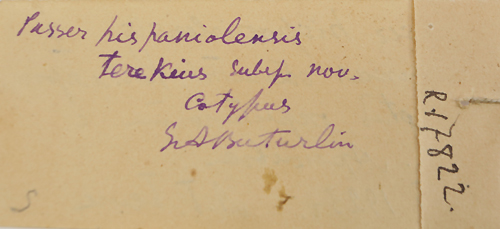 Passer hispaniolensis
terekius subsp. nov.
Cotypus
S.A. Buturlin
R.17822.
S